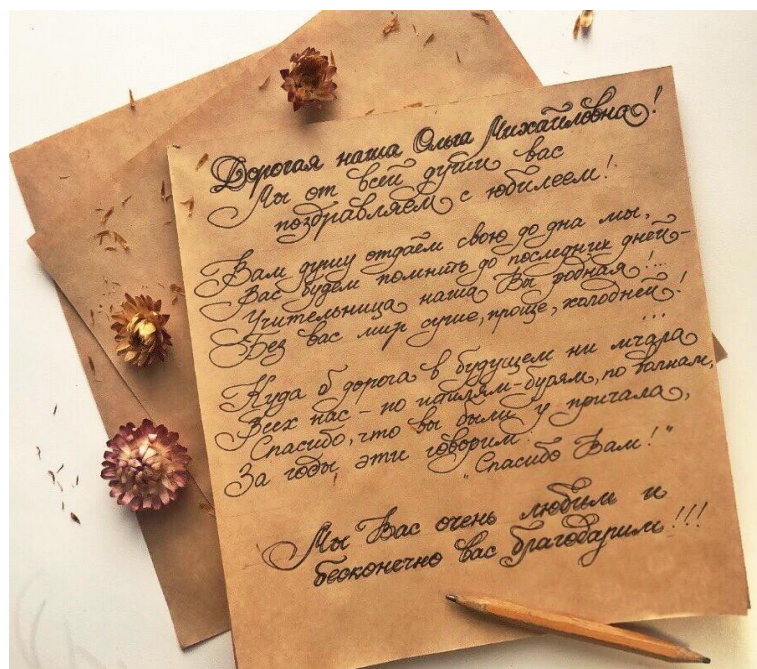 Дорогая наша Ольга Михайловна!
Мы от всей души вас
поздравляем с юбилеем!
Вам душу отдаём свою до дна мы,
Вас будем помнить до последних дней-
Учительница наша Вы родная!...
Без вас мир суше, проще, холодней!
...
Куда б дорога в будущем ни мчала
Всех нас - по штилям-бурям, по волнам,
Спасибо, что вы были у причала,
За годы эти говорим:
"Спасибо Вам!"
Мы Вас очень любим и
бесконечно вас благодарим!!!